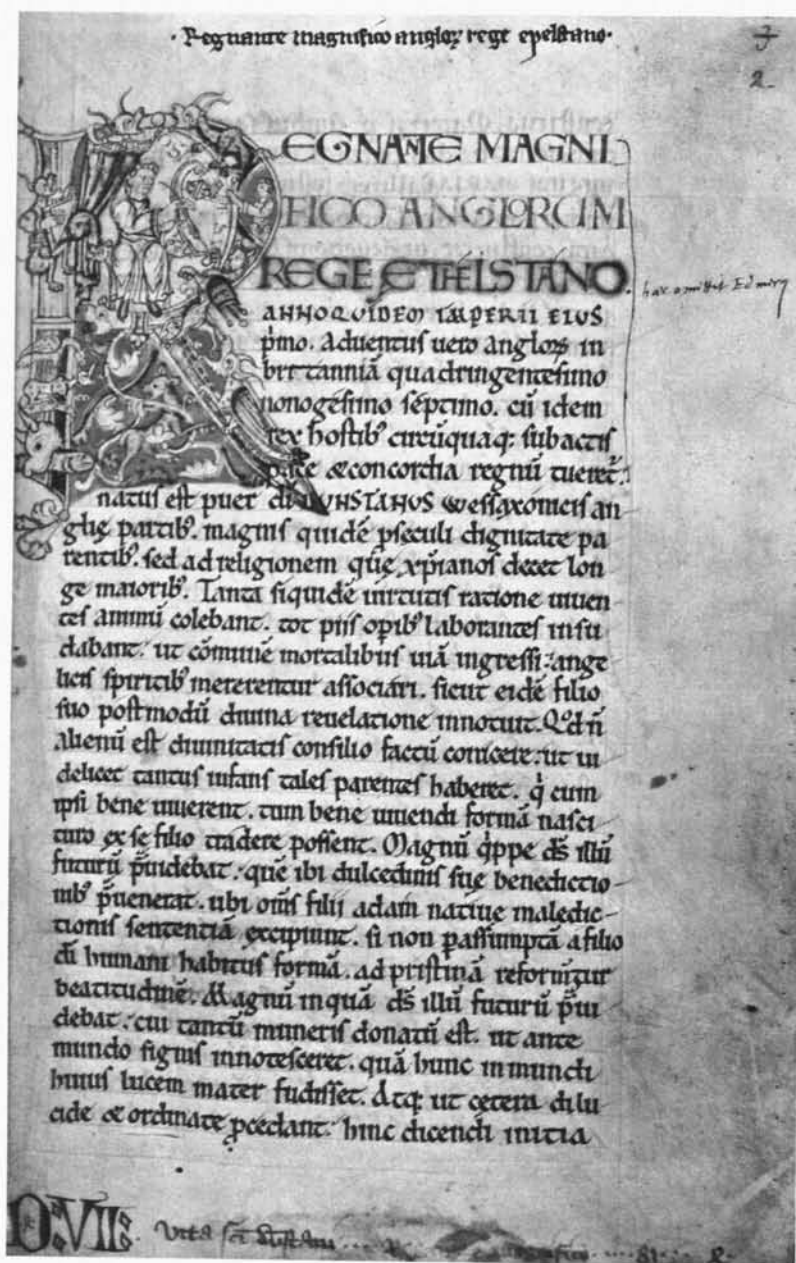 · Regnante magnifico angloꝝ rege eþelstano ·
3
2
REGNANTE MAGNI
FICO ANGLORUM
REGE ÆTHELSTANO.
hæc omittit Edmerꝰ
ANNO QUIDEM IMPERII EIUS
p̄mo. aduentus uero angloꝝ in
brittanniā quadringentesimo
nonogesimo septimo. cū idem
rex hostib; circūquaq; subactis
pace & concordia regnū tueret᷑.
natus est puer dī DUNSTANUS Wessaxonicis an
glię partib;. magnis quidē p̄ seculi dignitate pa
rentib;. sed ad religionem quę xp̄ianos decet lon
ge maiorib;. Tanta siquidē uirtutis ratione uiuen
tes animū colebant. tot piis opib; laborantes insu
dabant. ut cōmunē mortalibus uiā ingressi. ange
licis spiritib; mererentur associari. sicut eidē filio
suo postmodū diuina reuelatione innotuit. Qd n̄
alienū est diuinitatis consilio factū conicere. ut ui
delicet tantus infans tales parentes haberet. q̇ cum
ipsi bene uiuerent. tum bene uiuendi formā nasci
turo ex se filio tradere possent. Magnū q̇ppe d̄s illū
futurū p̄uidebat. quē ibi dulcedinis suę benedictio
nib; p̄uenerat. ubi om̄s filii adam natiuę maledic-
tionis sententiā excipiunt. si non p assumptā a filio
dī humani habitus formā. ad pristinā reformēt᷑
beatitudinē. Magnū inquā d̄s illū futurū p̄ui
debat. cui tantū muneris donatū est. ut ante
mundo signis innotesceret. quā hunc in mundi
huius lucem mater fudisset. Atq; ut cętera dilu
cide & ordinate pcedant. hinc dicendi initia
D. VII.
Vita sc̄i Dunstani